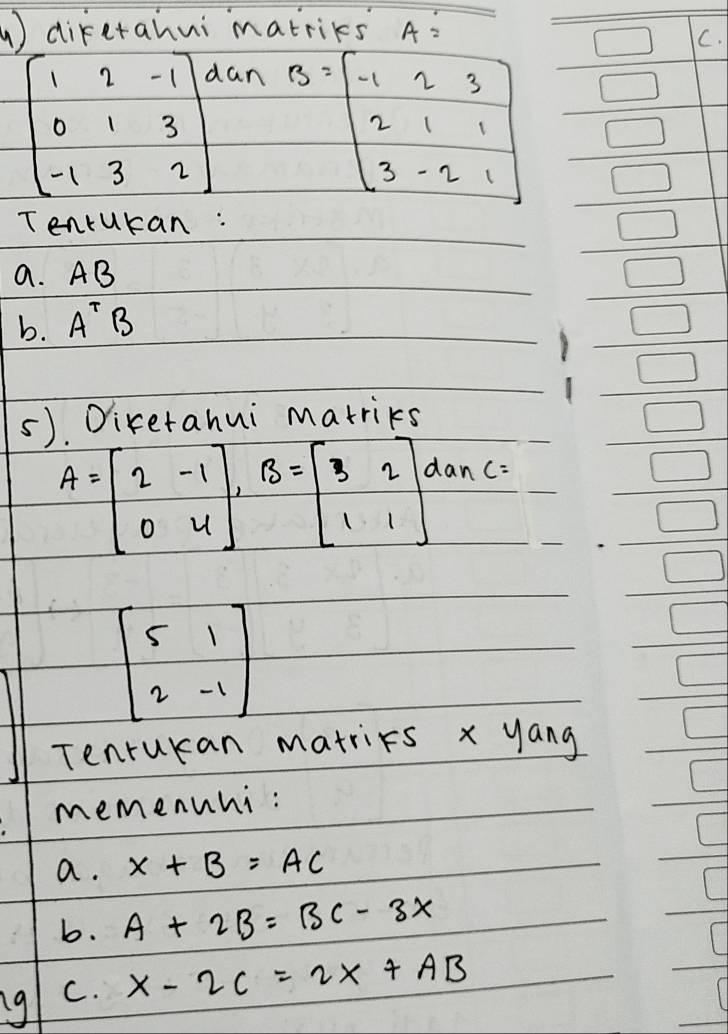 4) diketahui matriks A =
[1 2 -1] dan B = [-1 2 3]
[0 1 3] [2 1 1]
[-1 3 2] [3 -2 1]
Tentukan :
a. AB
b. AᵀB
5). Diketahui matriks
A = [2 -1], B = [3 2] dan C =
[0 4] [1 1]
[5 1]
[2 -1]
Tentukan matriks x yang
memenuhi:
a. x + B = AC
b. A + 2B = BC - 3x
c. x - 2C = 2x + AB
C.
ng